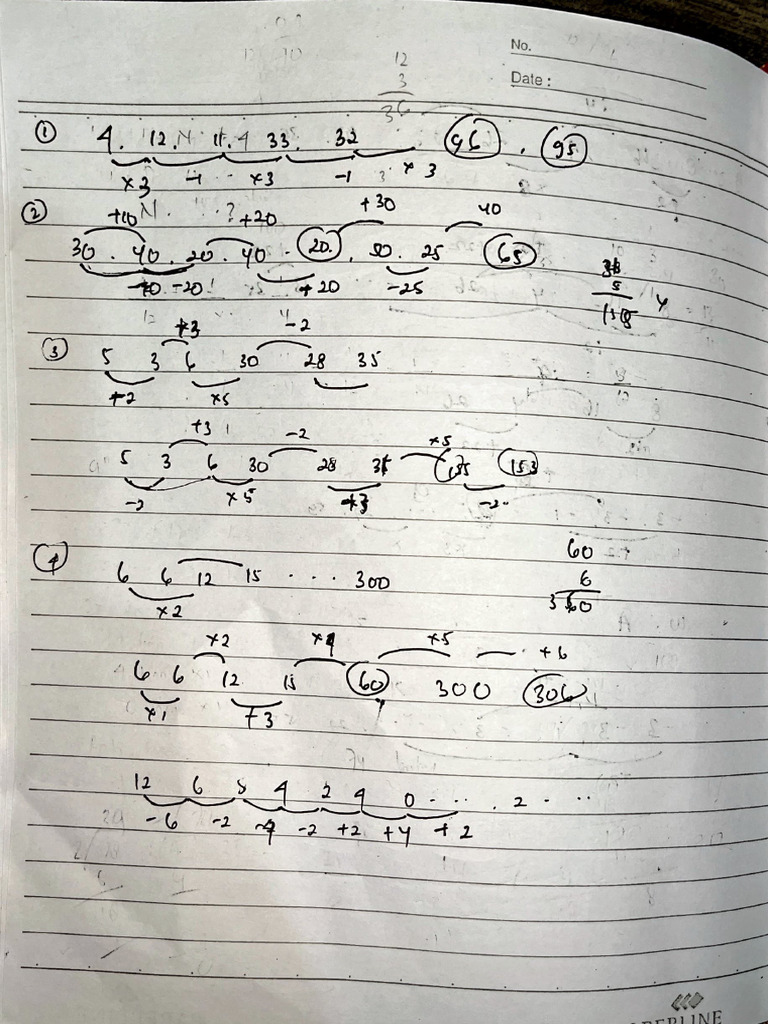 No.
12
3
36
Date :
① 4. 12. 11. 33. 32 96 . 95
×3 -1 ×3 -1 × 3
② +10 ? +20 +30 40
30 . 40. 20 . 40 . 20. 50. 25 65
-20 +20 -25
5
+3 -2
③ 5 3 6 30 28 35
+2 ×5
+3 -2 ×5
5 3 6 30 28 153
-2 ×5 -2
60
6
④ 6 6 12 15 . . . 300
×2
×2 ×5 +6
6 6 12 15 60 300 306
×1 +3
12 6 5 4 2 4 0 . . . . 2 . . .
-6 -2 -2 +2 +4 +2